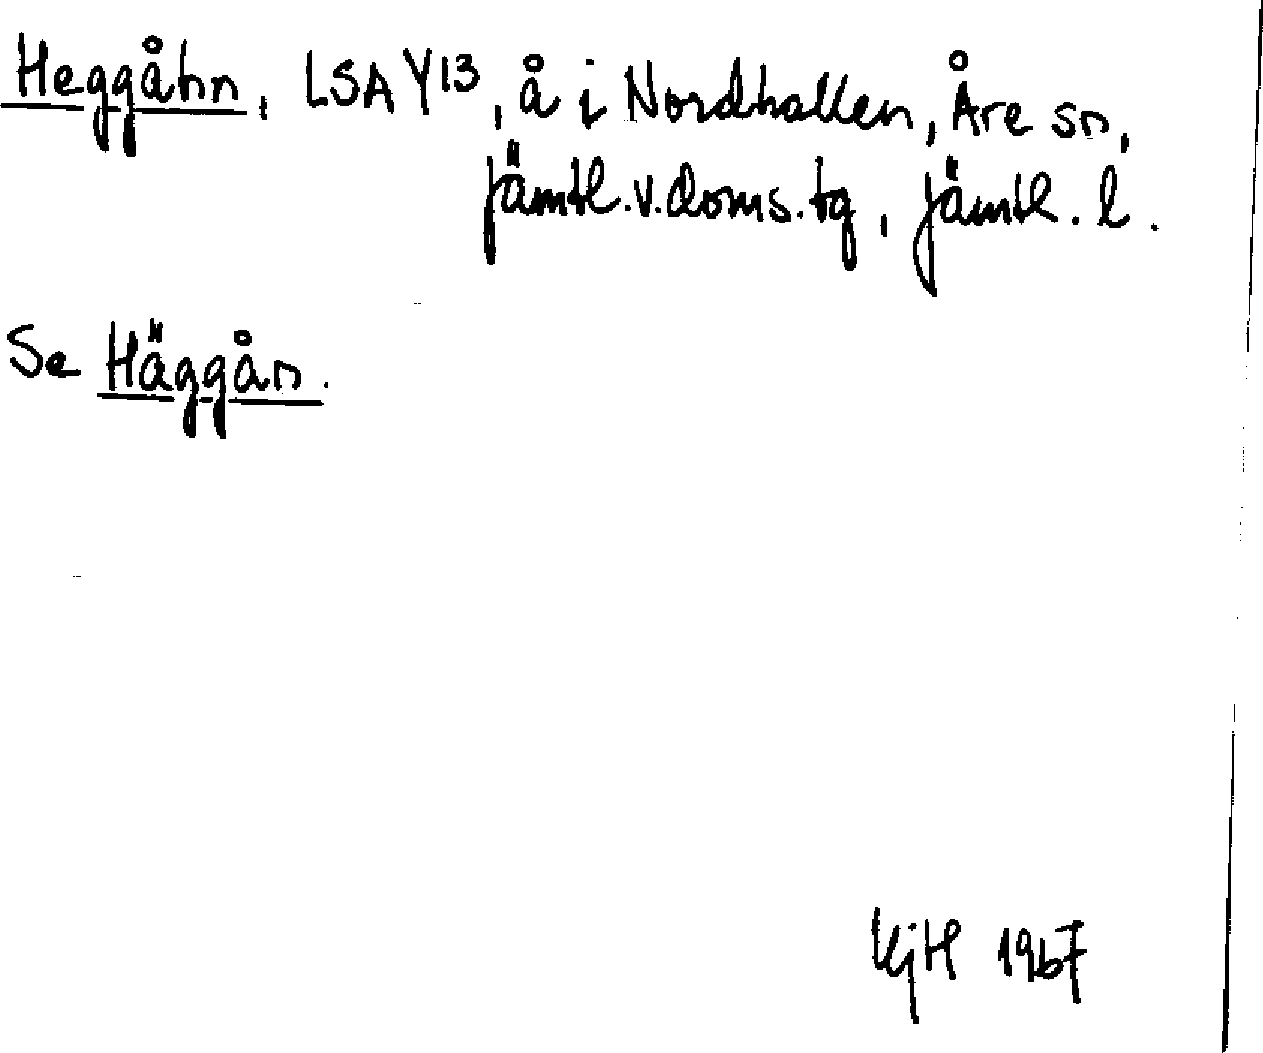 Heggåhn, LSA Y13, å i Nordhallen, Åre sn,
Jämtl.v.doms.tg, Jämtl. l.
Se Häggån.
KjH 1967